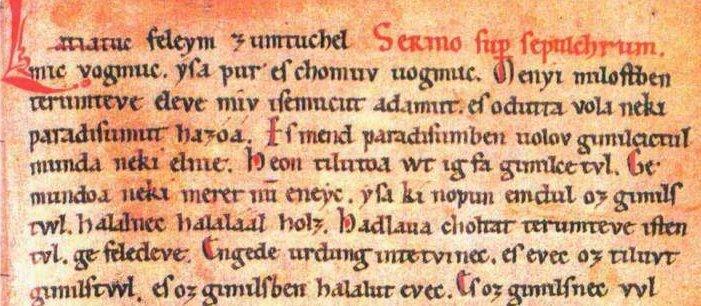 Latiatuc feleym zumtuchel Sermo sup sepulchrum.
mic vogmuc. yſa pur eſ chomuv uogmuc. Menyi miloſtben
terumteve eleve miv iſemucut adamut. eſ odutta vola neki
paradiſumut hazoa. Eſ mend paradiſumben uolov gimilcictul
munda neki elnie. Heon tilutoa wt ig fa gimilce tvl. Ge
mundoa neki meret nū eneyc. yſa ki nopun emdul oz gimilſ
twl. halalnec halalaal holz. Hadlaua choltat terumteve iſten
tvl. ge feledeve. Engede urdung intetvinec. eſ evec oz tiluvt
gimilſtwl. eſ oz gimilſben halalut evec. Eſ oz gimilſnec vvl